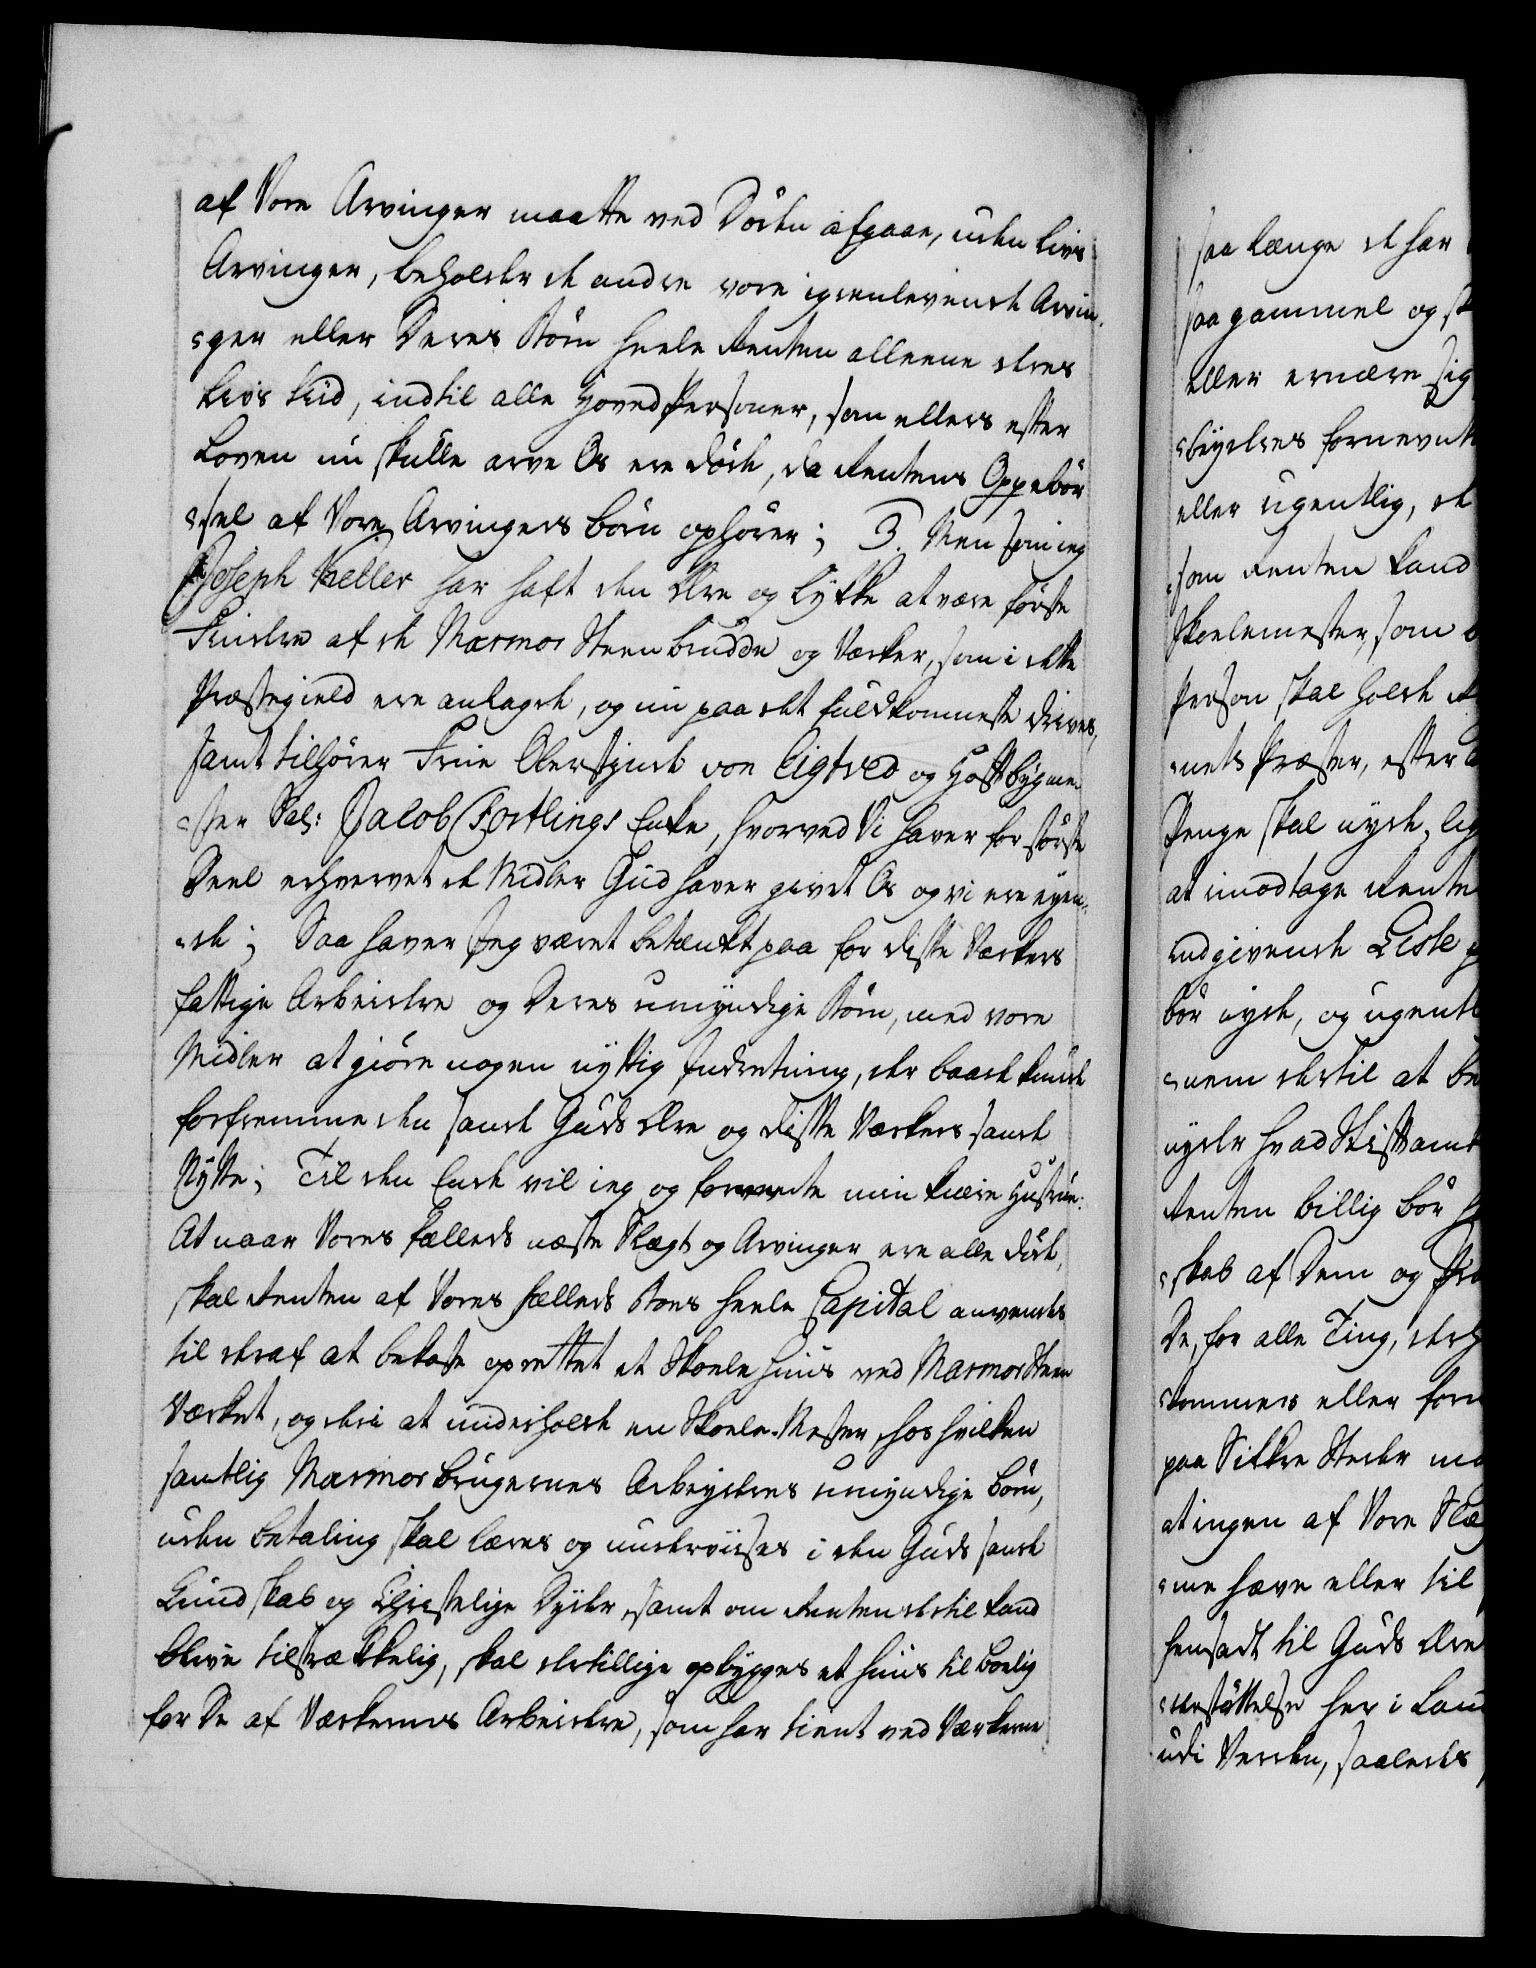 af Vore Arvinger maatte ved Døden afgaae, uden Livs
Arvinger, beholder de andre vore igienlevende Arvin-
ger eller Deres Børn heele Renten alleene deres
Livs tiid, indtil alle Hoved Personer, som ellers efter
Loven nu skulle arve Os ere døde, da Rentens Oppebør
sel af Vore Arvingers børn ophører; 3. Men som ieg
Joseph Keller har haft den Ære og Lykke at være første
Findere af de Marmor Steenbrudde og Værker, som i dette
Præstegield ere anlagde, og nu paa det fuldkomneste drives,
samt tilhører Frue Oberstinde von Eigtved og Hofbygme-
ster Sal: Jacob Fortlings Enke, hvorved Vi haver for største
Deel erhvervet de Midler Gud haver givet Os og vi ere eyen-
de; Saa haver Jeg været betænkt paa for disse Værkers
fattige Arbeidere og Deres umyndige Børn, med vore
Midler at giøre nogen nyttig Indretning, der baade kunde
forfremme den sande Guds Ære og disse Værkers sande
Nytte; Til den Ende vil ieg og formedte min kiære Hustrue:
At naar Vores fælleds næste Slægt og Arvinger ere alle døde,
skal Renten af Vores fælleds Boes heele Capital anvendes
til deraf at bekoste oprettet et Skoele huus ved Marmor Steen
Værket, og deri at underholde en Skoele-Mester, hos hvilken
samtlig Marmor brugernes Arbeyderes umyndige børn,
uden betaling skal læres og underviises i den Guds sande
Kundskab og Christelige Dyder, samt om Renten dertil kand
blive tilstrækkelig, skal dertillige opbygges et huus til boelig
for De af Værkernes Arbeidere, som har tient ved Værkerne
saa længe de har
saa gammel og
eller ernære sig
beyderes fornevnte
eller ugentlig, de
som Renten kand
Skoelemester, som
Person skal holde
nets Præster, efter
Penge skal nyde,
at imodtage Rente
indgivende Liste
bør nyde, og ugentl
nem dertil at be
nyder hvad Stiftamt
Renten billig bør
skab af Dem og
De, for alle Ting,
kommers eller for
paa Sikkre Steder
at ingen af Vore Slæ
me hæve eller til
hensadt til Guds Ære
derstøttelse her i
udi Verden, saaledes